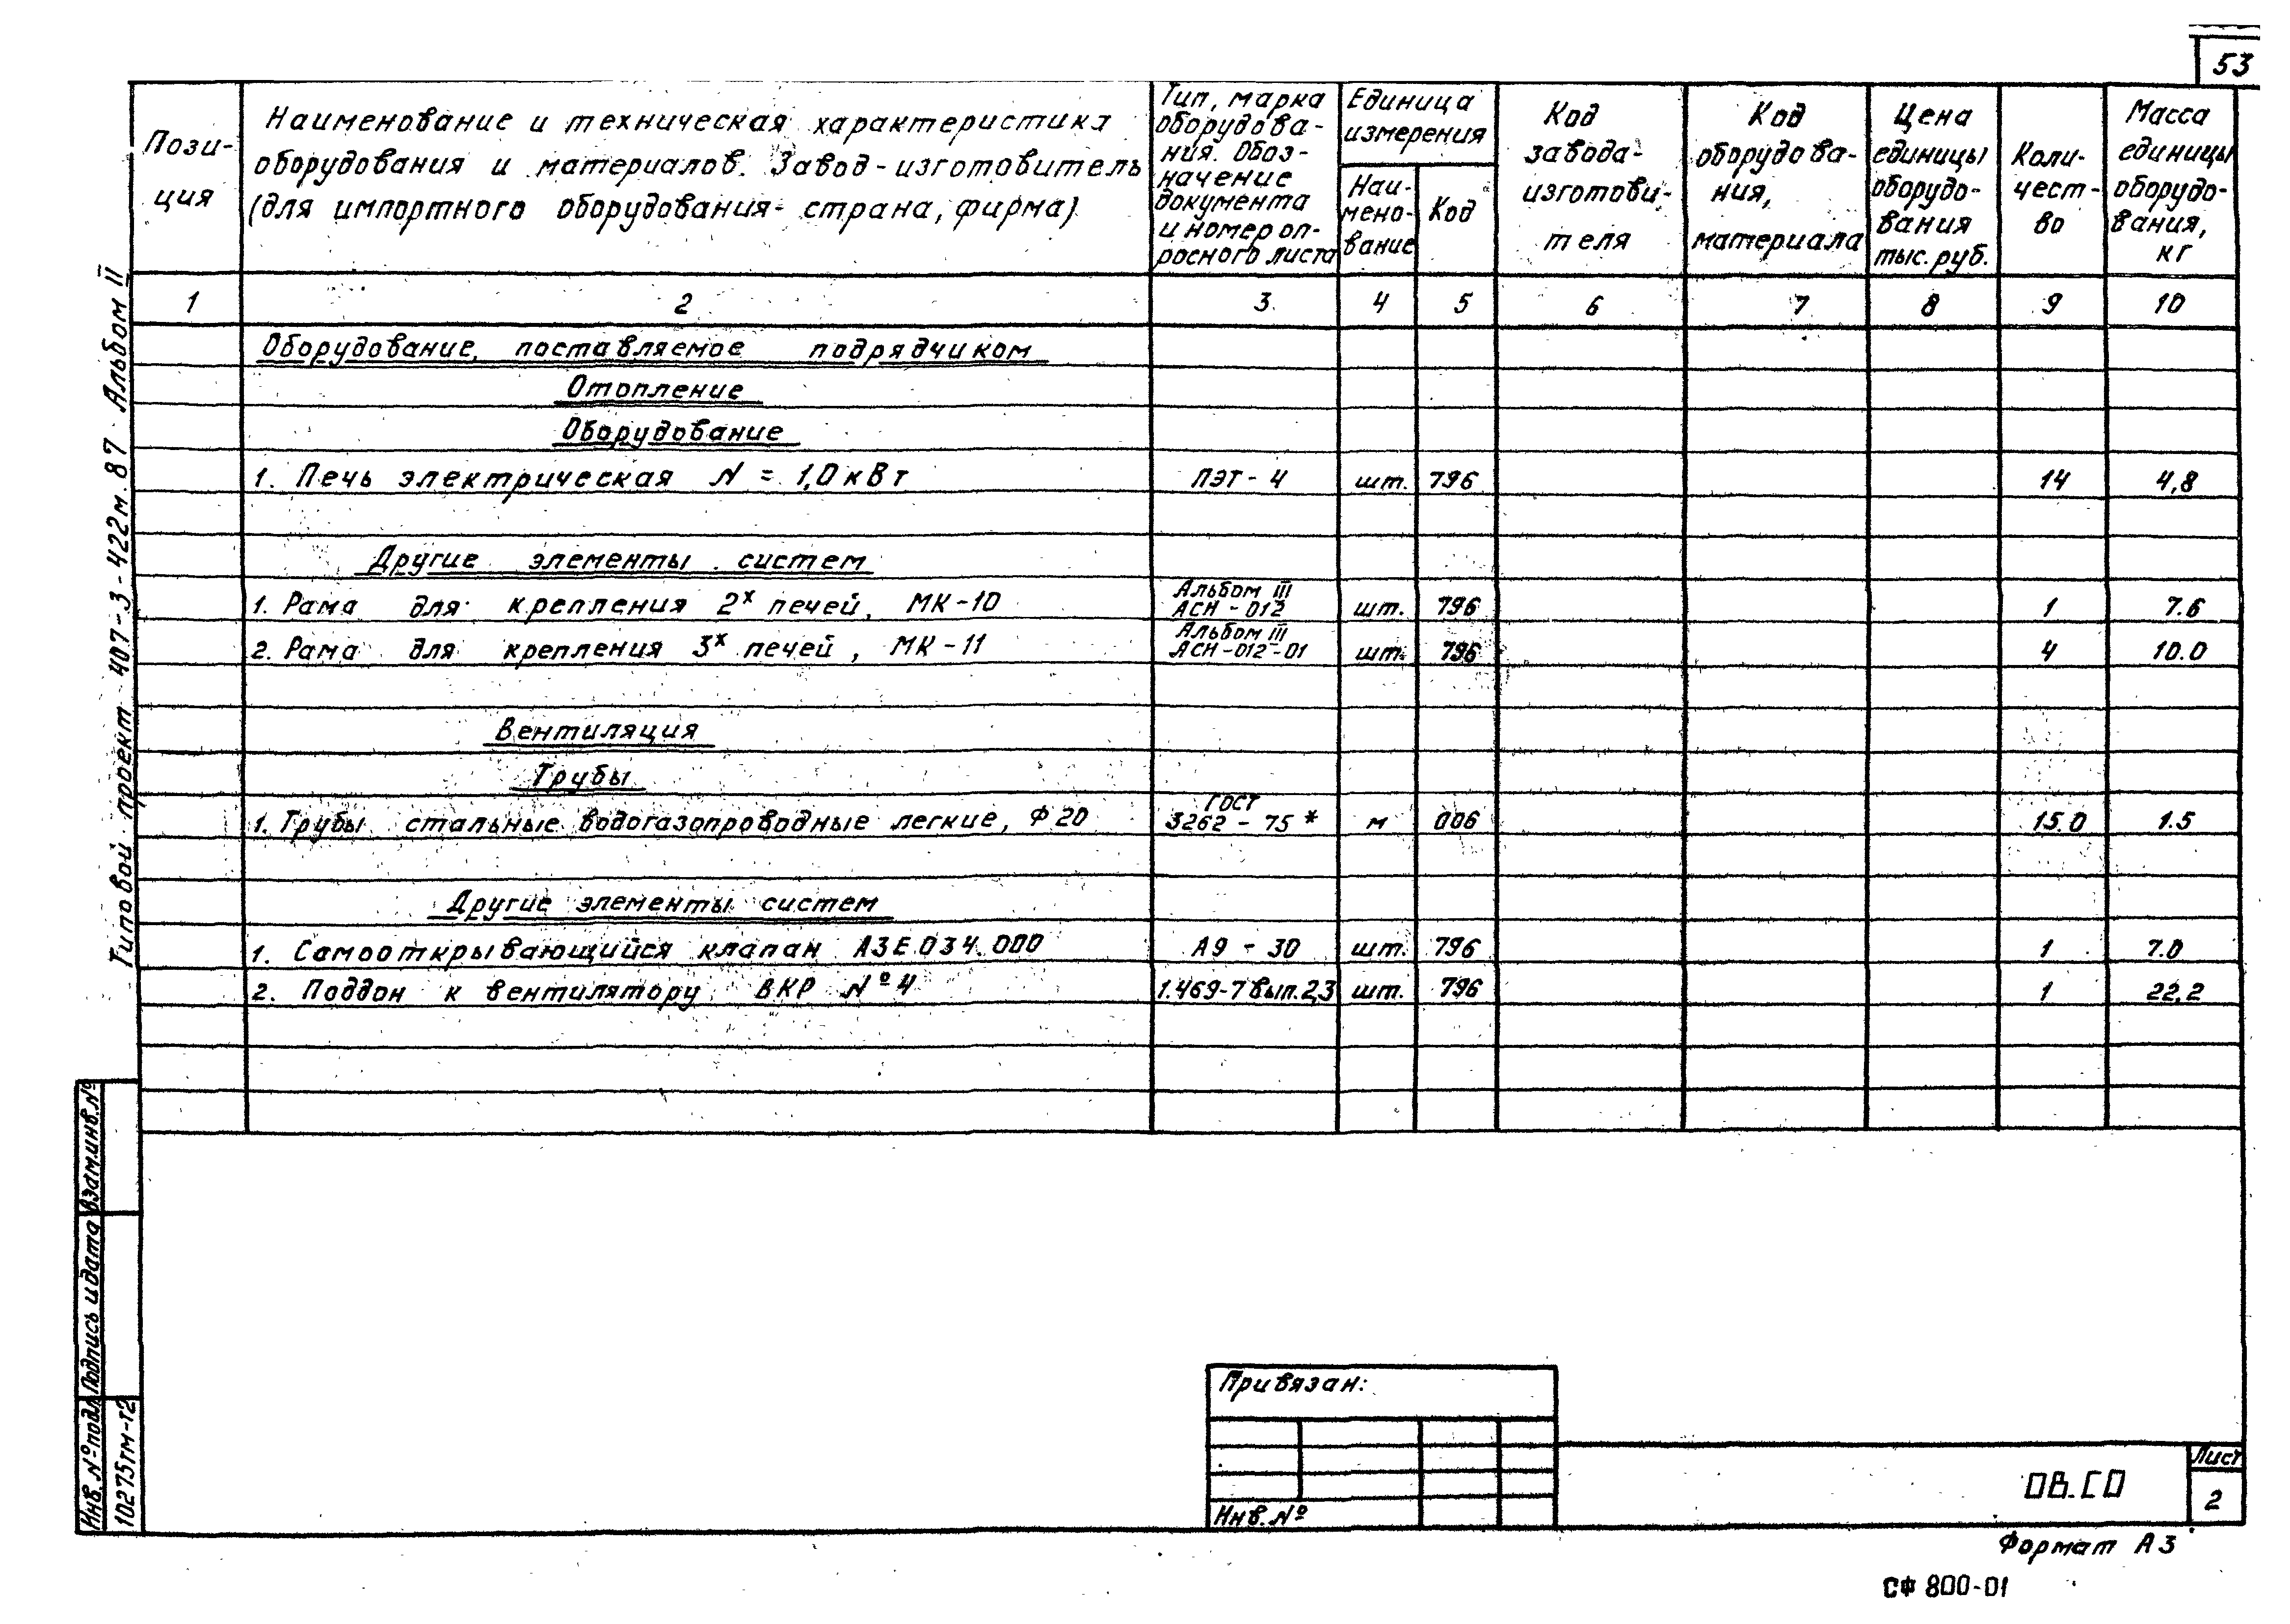 53
Пози-
ция
Наименование и техническая характеристика
оборудования и материалов. Завод-изготовитель
(для импортного оборудования- страна, фирма)
Тип, марка
оборудова-
ния. Обоз-
начение
документа
и номер оп-
росного листа
Единица
измерения
Наи-
мено-
вание
Код
Код
завода-
изготови-
теля
Код
оборудова-
ния,
материала
Цена
единицы
оборудо-
вания
тыс. руб.
Коли-
чест-
во
Масса
единицы
оборудо-
вания,
кг
1 2 3 4 5 6 7 8 9 10
Оборудование, поставляемое подрядчиком
Отопление
Оборудование
1. Печь электрическая N = 1,0 кВт ПЭТ - 4 шт. 796 14 4,8
Другие элементы систем
Альбом III
1. Рама для крепления 2х печей, МК-10 АСН - 012 шт. 796 1 7.6
Альбом III
2. Рама для крепления 3х печей, МК-11 АСН-012-01 шт. 796 4 10.0
Вентиляция
Трубы
ГОСТ
1. Трубы стальные водогазопроводные легкие, Ф20 3262 - 75 * м 006 15.0 1.5
Другие элементы систем
1. Самооткрывающийся клапан АЗЕ.034.000 А9 - 30 шт. 796 1 7.0
2. Поддон к вентилятору ВКР №4 1.469-7 вып.2,3 шт. 796 1 22,2
Типовой проект 407-3-422м.87 Альбом II
Взам.инв.№
Подпись и дата
Инв. № подл.
10275тм-т2
Привязан:
Инв. №
ОВ.СО
Лист
2
Формат А3
СФ 800-01